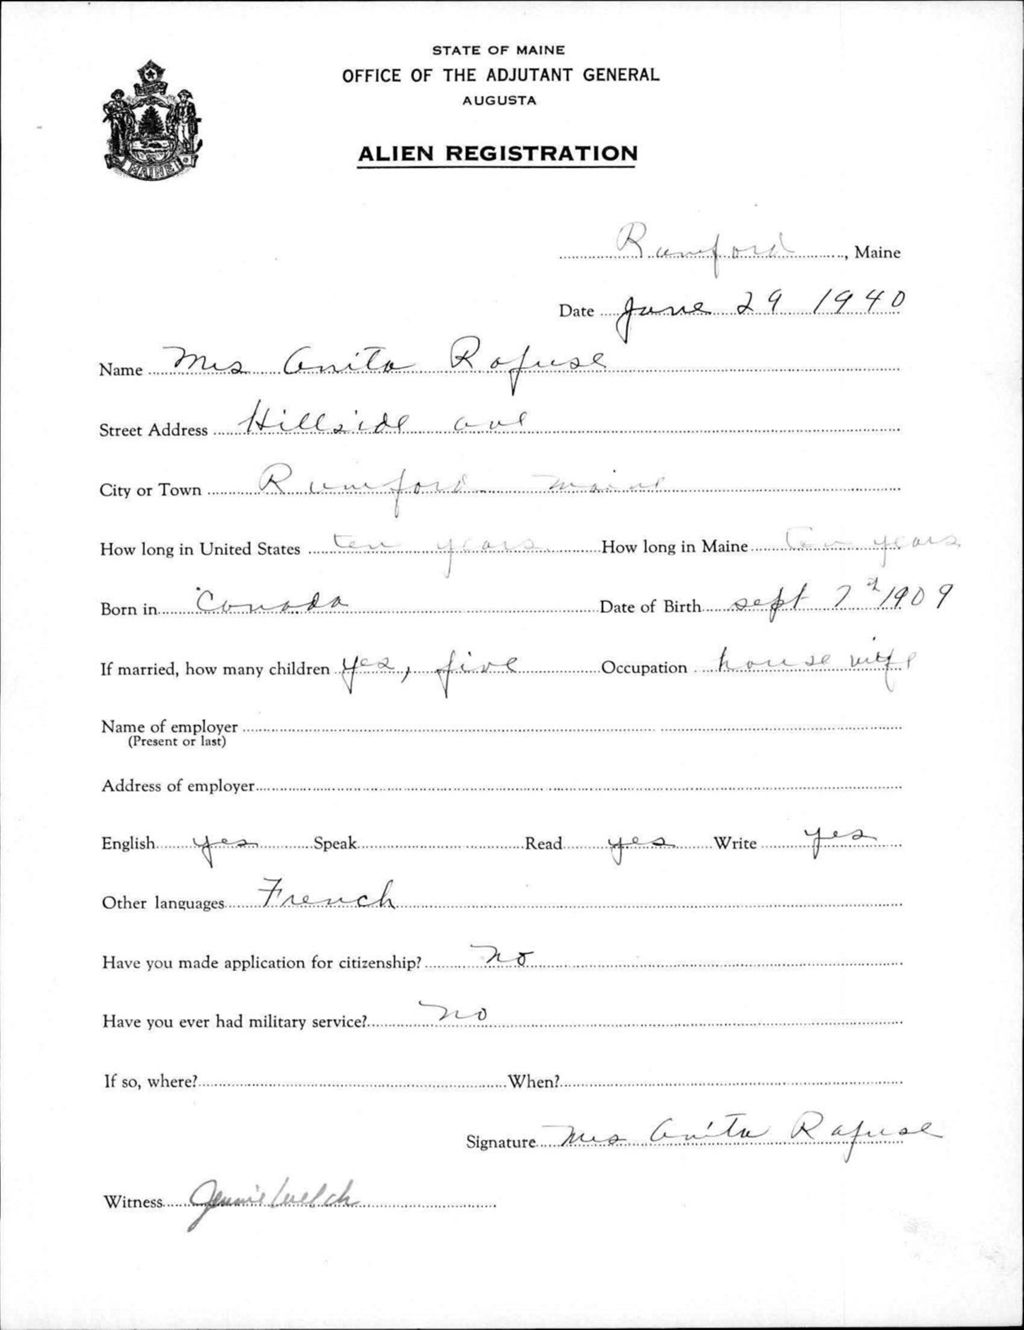 STATE OF MAINE
OFFICE OF THE ADJUTANT GENERAL
AUGUSTA
ALIEN REGISTRATION
MAINE
Rumford, Maine
Date June 29 1940
Name Mrs Anita Rafuse
Street Address Hillside ave
City or Town Rumford Maine
How long in United States ten years How long in Maine ten years
Born in Canada Date of Birth sept 7th 1909
If married, how many children yes, five Occupation house wife
Name of employer
(Present or last)
Address of employer
English yes Speak Read yes Write yes
Other languages French
Have you made application for citizenship? no
Have you ever had military service? no
If so, where? When?
Signature Mrs Anita Rafuse
Witness Jennie Welch